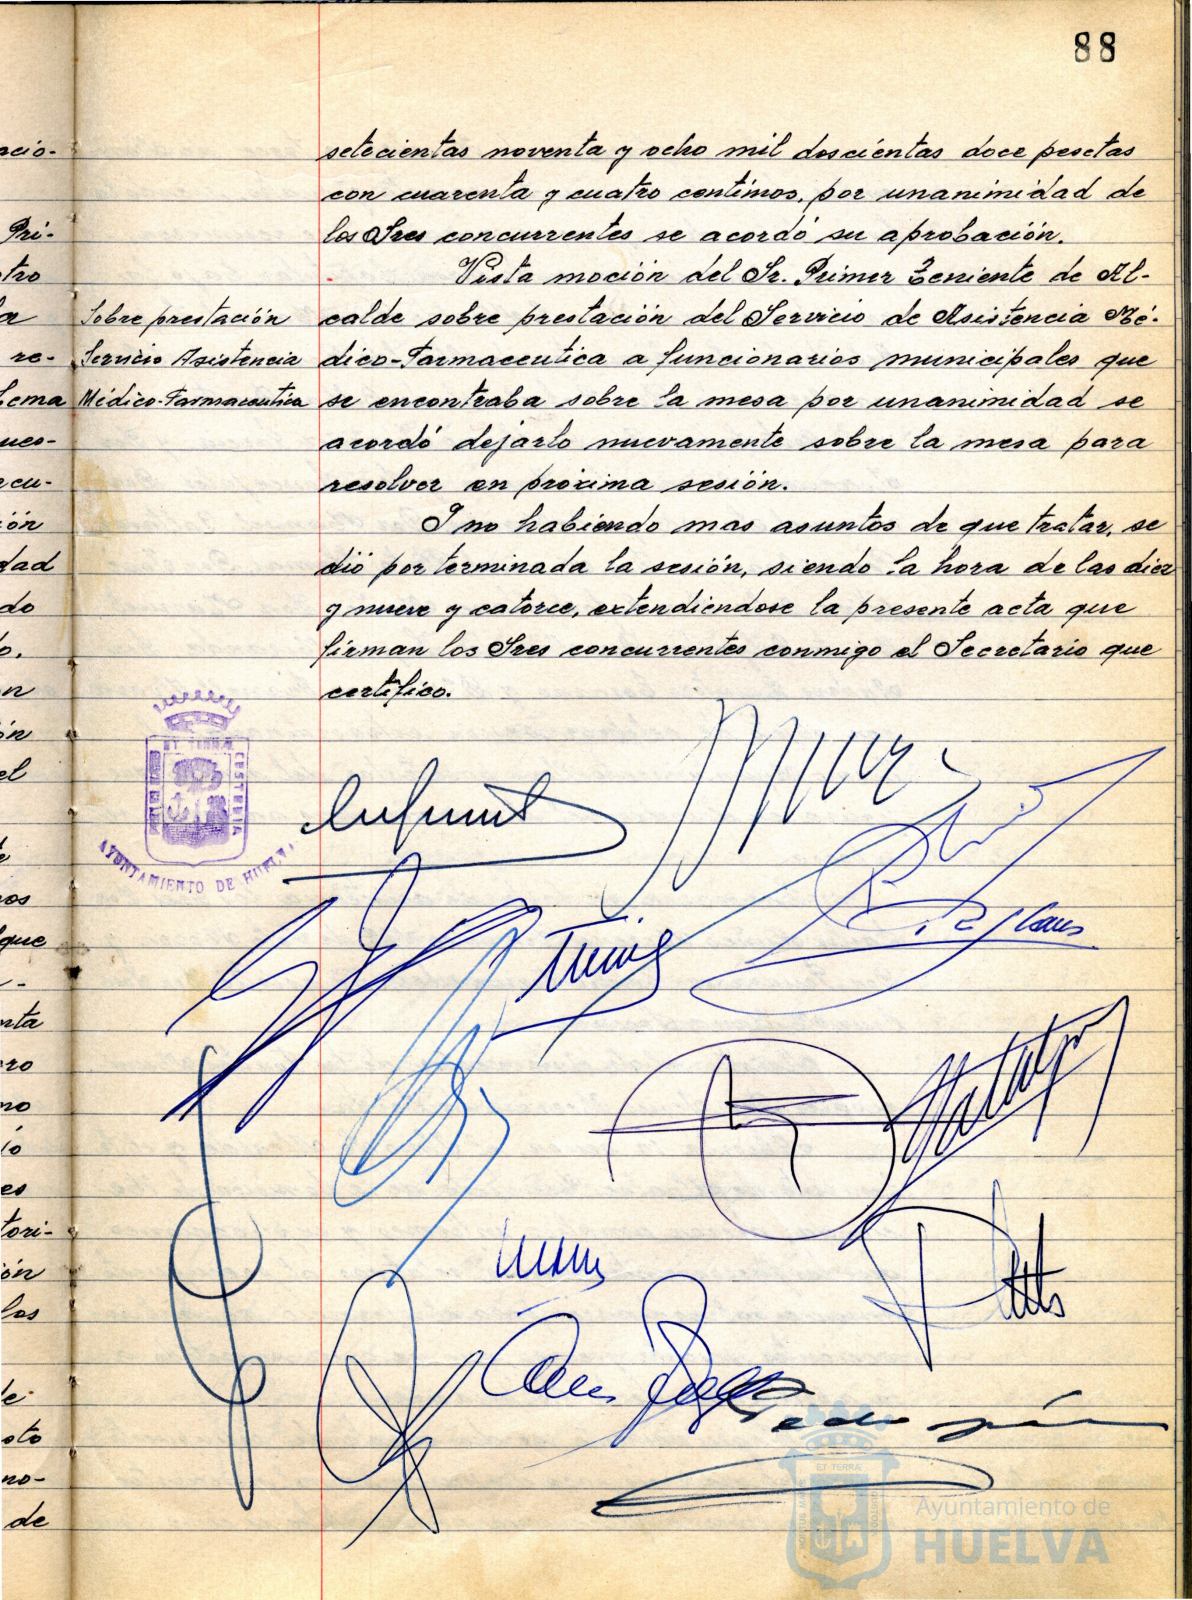 88
setecientas noventa y ocho mil doscientas doce pesetas
con cuarenta y cuatro centimos, por unanimidad de
los Sres concurrentes se acordó su aprobación.
Vista moción del Sr. Primer Teniente de Al-
calde sobre prestación del Servicio de Asistencia Mé-
dico-Farmaceutica a funcionarios municipales que
se encontraba sobre la mesa por unanimidad se
acordó dejarlo nuevamente sobre la mesa para
resolver en próxima sesión.
Y no habiendo mas asuntos de que tratar, se
dió por terminada la sesión, siendo la hora de las diez
y nueve y catorce, extendiendose la presente acta que
firman los Sres concurrentes conmigo el Secretario que
certifico.
Sobre prestación
Servicio Asistencia
Médico-Farmaceutica
acio-
Pri-
re-
cu-
ión
dad
do
el
que
nta
es
tori-
ón
los
de
no-
de
ET TERRÆ
CUSTODIA
AYUNTAMIENTO DE HUELVA
ET TERRA
Ayuntamiento de
HUELVA